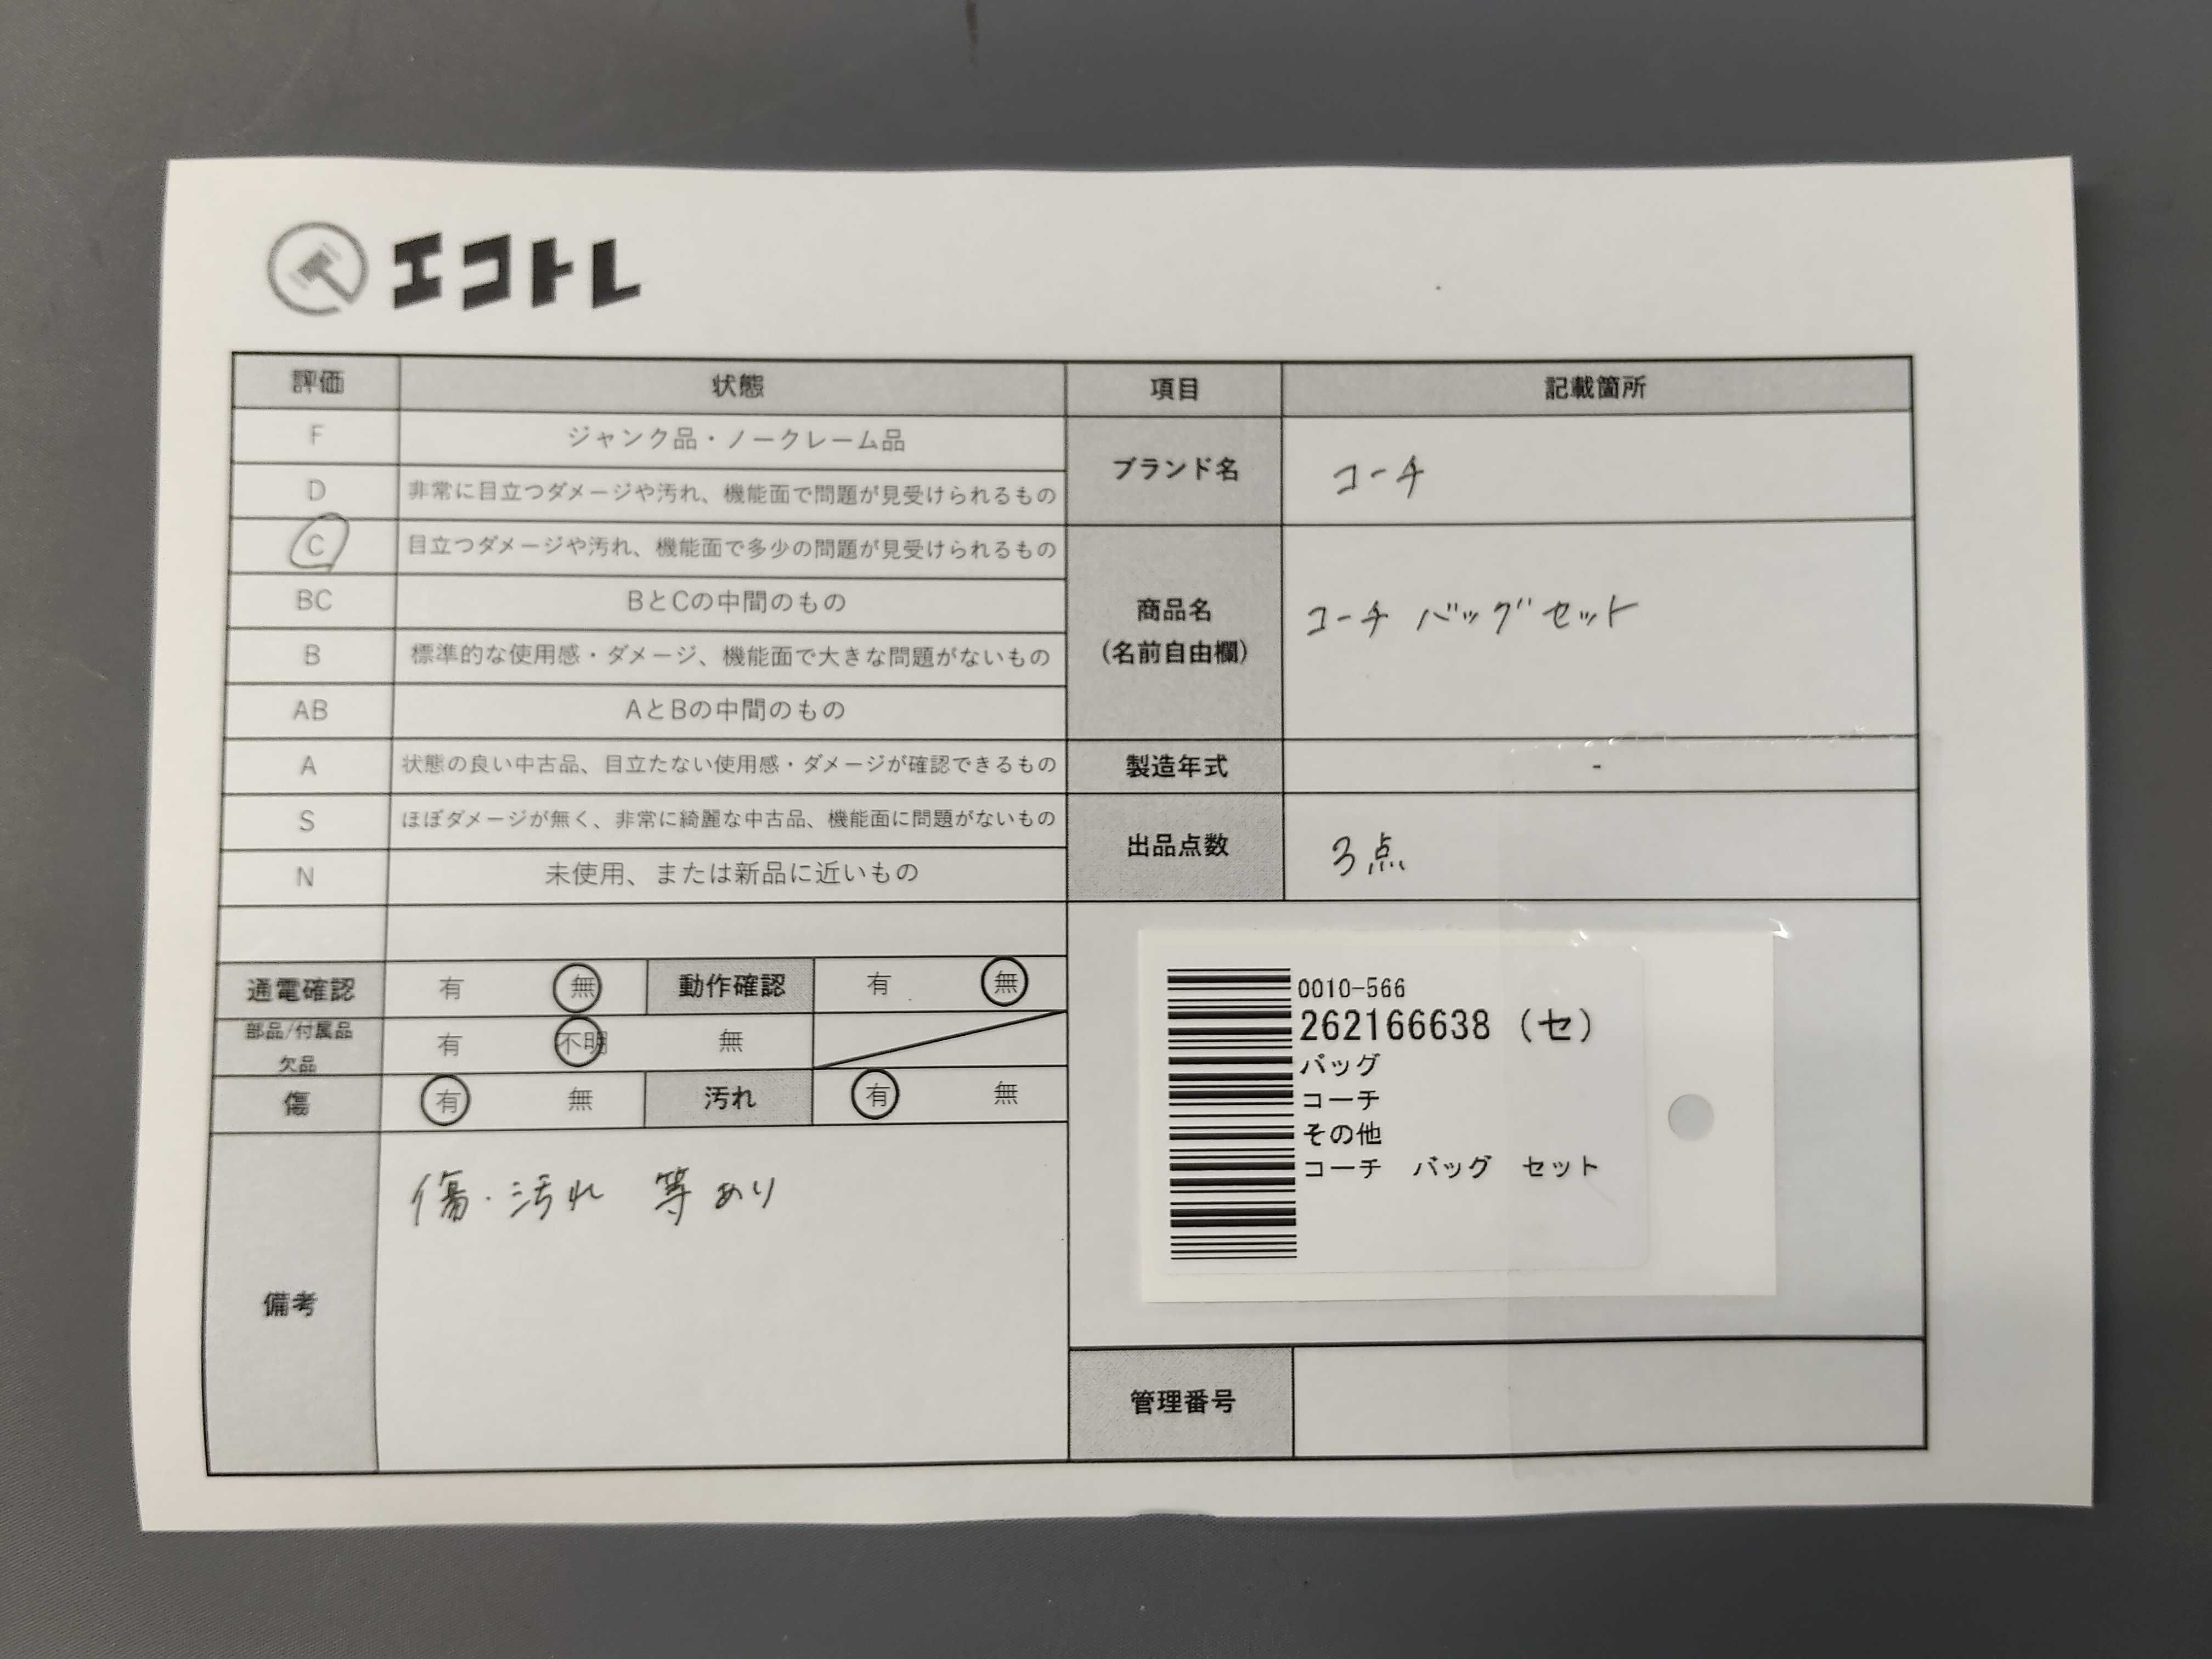 エコトレ
評価 状態 項目 記載箇所
F ジャンク品・ノークレーム品
D 非常に目立つダメージや汚れ、機能面で問題が見受けられるもの
C 目立つダメージや汚れ、機能面で多少の問題が見受けられるもの
BC BとCの中間のもの
B 標準的な使用感・ダメージ、機能面で大きな問題がないもの
AB AとBの中間のもの
A 状態の良い中古品、目立たない使用感・ダメージが確認できるもの
S ほぼダメージが無く、非常に綺麗な中古品、機能面に問題がないもの
N 未使用、または新品に近いもの
ブランド名 コーチ
商品名
(名前自由欄)
コーチ バッグ セット
製造年式 -
出品点数 3点
通電確認 有 無 動作確認 有 無
部品/付属品
欠品
有 不明 無
傷 有 無 汚れ 有 無
備考
傷・汚れ 等あり
0010-566
262166638 (セ)
バッグ
コーチ
その他
コーチ バッグ セット
管理番号